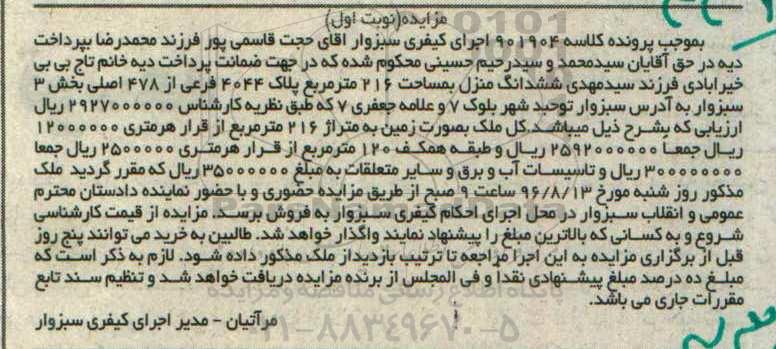 مزایده(نوبت اول)
بموجب پرونده کلاسه ۹۰۱۹۰۴ اجرای کیفری سبزوار اقای حجت قاسمی پور فرزند محمدرضا بپرداخت
دیه در حق آقایان سیدمحمد و سیدرحیم حسینی محکوم شده که در جهت ضمانت پرداخت دیه خانم تاج بی بی
خیرابادی فرزند سیدمهدی ششدانگ منزل بمساحت ۲۱۶ مترمربع پلاک ۴۰۴۴ فرعی از ۴۷۸ اصلی بخش ۳
سبزوار به آدرس سبزوار توحید شهر بلوک ۷ و علامه جعفری ۷ که طبق نظریه کارشناس ۲۹۲۷۰۰۰۰۰۰ ریال
ارزیابی که بشرح ذیل میباشد.کل ملک بصورت زمین به متراژ ۲۱۶ مترمربع از قرار هرمتری ۱۲۰۰۰۰۰۰
ریال جمعا ۲۵۹۲۰۰۰۰۰۰ ریال و طبقه همکف ۱۲۰ مترمربع از قرار هرمتری ۲۵۰۰۰۰۰ ریال جمعا
۳۰۰۰۰۰۰۰۰ ریال و تاسیسات آب و برق و سایر متعلقات به مبلغ ۳۵۰۰۰۰۰۰ ریال که مقرر گردید ملک
مذکور روز شنبه مورخ ۹۶/۸/۱۳ ساعت ۹ صبح از طریق مزایده حضوری و با حضور نماینده دادستان محترم
عمومی و انقلاب سبزوار در محل اجرای احکام کیفری سبزوار به فروش برسد. مزایده از قیمت کارشناسی
شروع و به کسانی که بالاترین مبلغ را پیشنهاد نمایند واگذار خواهد شد. طالبین به خرید می توانند پنج روز
قبل از برگزاری مزایده به این اجرا مراجعه تا ترتیب بازدیداز ملک مذکور داده شود. لازم به ذکر است که
مبلغ ده درصد مبلغ پیشنهادی نقدا و فی المجلس از برنده مزایده دریافت خواهد شد و تنظیم سند تابع
مقررات جاری می باشد.
مرآتیان - مدیر اجرای کیفری سبزوار
۰۲۱-۸۸۳۴۹۶۷۰-۵